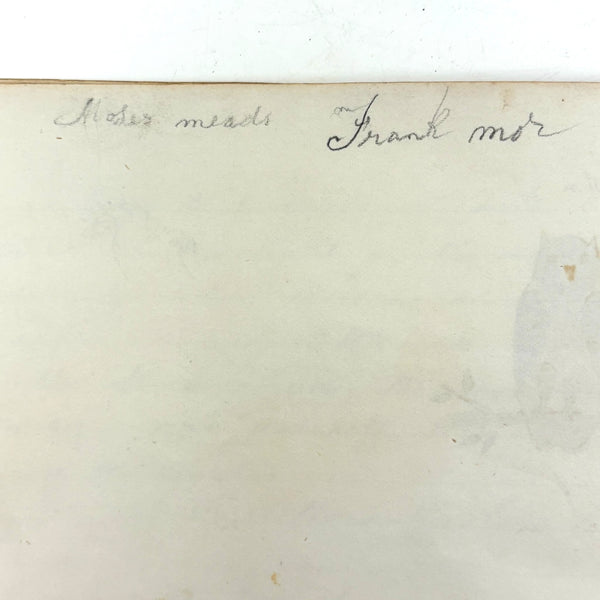 Moses meads Frank mor